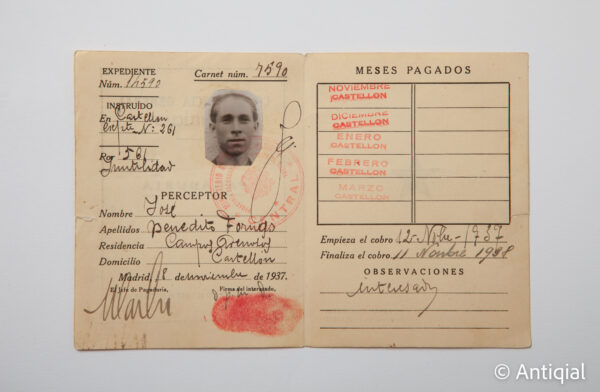 EXPEDIENTE
Núm. 14590
Carnet núm. 7590
INSTRUÍDO
En Castellon
Expte Nº 261
Por 561
Inutilidad
PERCEPTOR
Nombre José
Apellidos Benedito
Residencia Campos
Domicilio Castellon
Madrid, 18 de noviembre de 1937.
El Jefe de Pagaduría, Firma del interesado,
CENTRAL
MESES PAGADOS
NOVIEMBRE
CASTELLON
DICIEMBRE
CASTELLON
ENERO
CASTELLON
FEBRERO
CASTELLON
MARZO
CASTELLON
Empieza el cobro 12-Nbre-1937
Finaliza el cobro 11 Novbre 1938
OBSERVACIONES
Interesado
© Antiqial